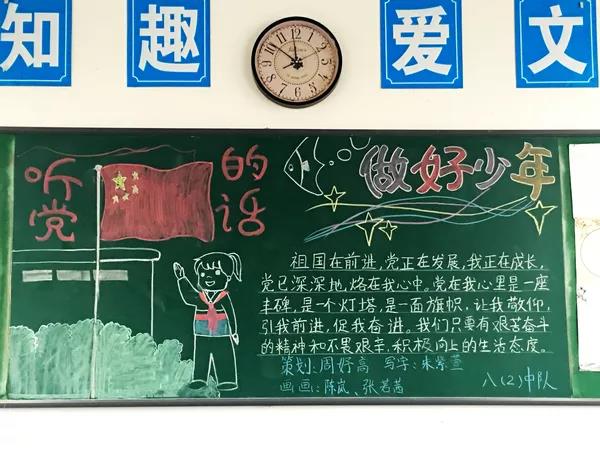 知 趣 爱 文
听党的话
做好少年
祖国在前进,党正在发展,我正在成长,
党已深深地,烙在我心中。党在我心里是一座
丰碑,是一个灯塔,是一面旗帜,让我敬仰,
引我前进,促我奋进。我们只要有艰苦奋斗
的精神和不畏艰辛,积极向上的生活态度。
策划:周妤高 写字:朱紫萱
画画:陈岚、张若茜
八(2)中队